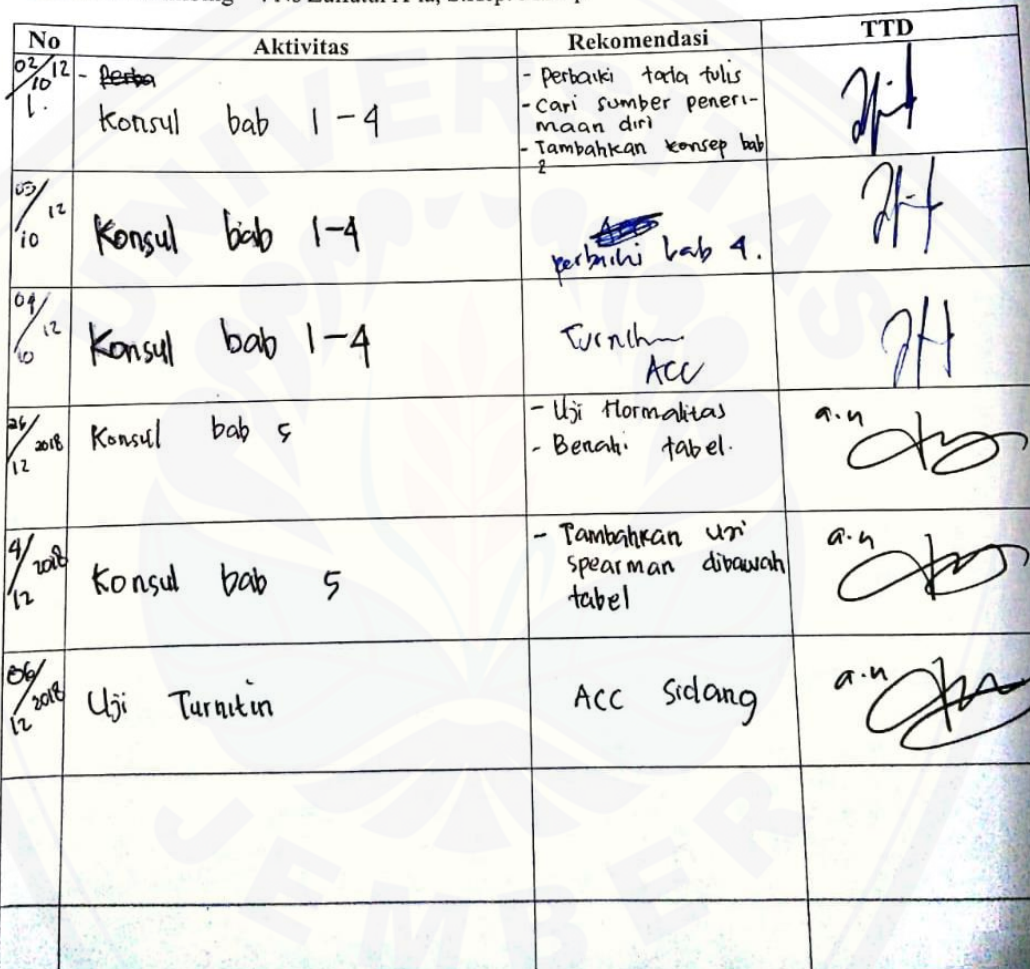 No Aktivitas Rekomendasi TTD
02/10 12
1.
- Perba
Konsul bab 1-4
- Perbaiki tata tulis
- Cari sumber peneri-
maan diri
- Tambahkan konsep bab
2
03/10 12
Konsul bab 1-4
perbaiki bab 4.
04/10 12
Konsul bab 1-4
ACC
26/12 2018
Konsul bab 5
- Uji Normalitas
- Benahi tabel.
a.n
4/12 2018
Konsul bab 5
- Tambahkan uji
spearman dibawah
tabel
a.n
06/12 2018
Uji Turnitin
ACC Sidang
a.n
UNIVERSITAS
JEMBER